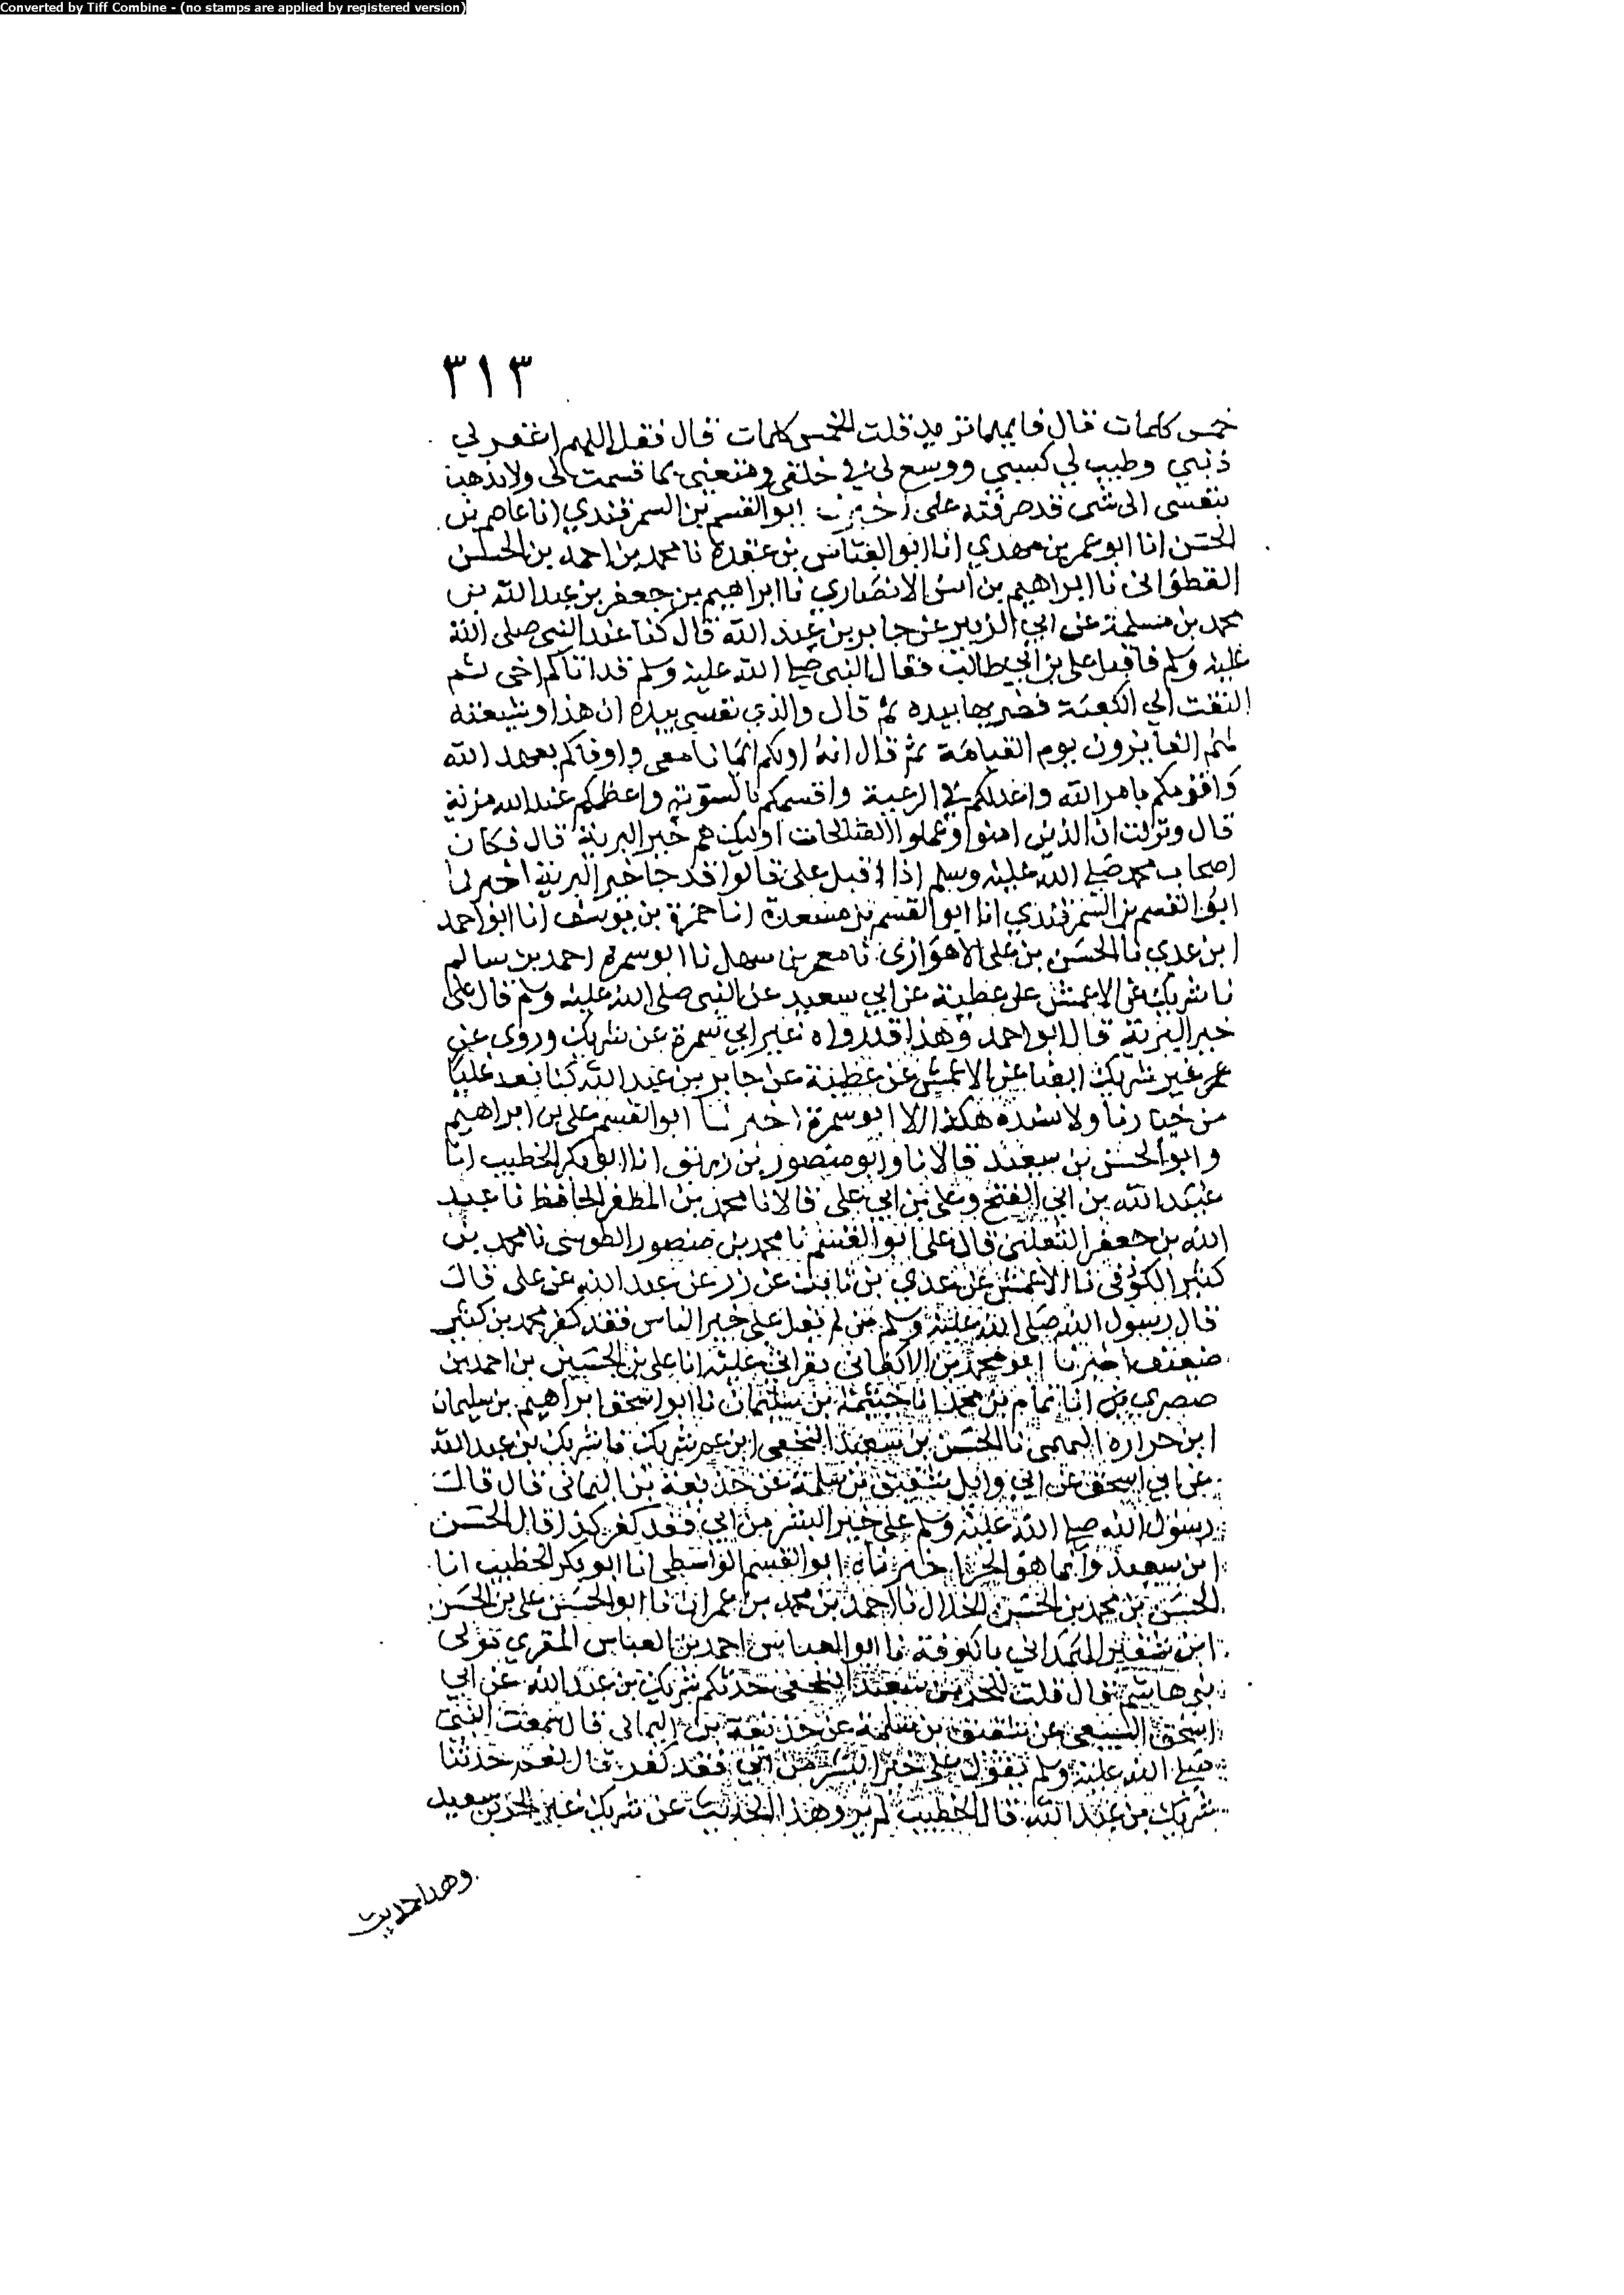 Converted by Tiff Combine - (no stamps are applied by registered version)
٣١٣
خمس كلمات قال فايهما تريد قلت الخمس كلمات قال فقل اللهم اغفر لي
ذنبي وطيب لي كسبي ووسع لي في خلقي ومتعني بما قسمت لي ولا تذهب
بنفسي الى شي قد صرفته على اخبرنا ابو القسم بن السمرقندي انا عاصم بن
الحسن انا ابو عمر بن مهدي انا ابو العباس بن عقدة نا محمد بن احمد بن الحسن
القطواني نا ابراهيم بن انس الانصاري نا ابراهيم بن جعفر بن عبد الله بن
محمد بن مسلمة عن ابي الزبير عن جابر بن عبد الله قال كنا عند النبي صلى الله
عليه وسلم فاقبل علي بن ابي طالب فقال النبي صلى الله عليه وسلم قد اتاكم اخي ثم
التفت الي الكعبة فضربها بيده ثم قال والذي نفسي بيده ان هذا وشيعته
لهم الفايزون يوم القيامة ثم قال انه اولكم ايمانا معي واوفاكم بعهد الله
واقومكم بامر الله واعدلكم في الرعية واقسمكم بالسوية واعظمكم عند الله مزية
قال ونزلت ان الذين امنوا وعملوا الصالحات اوليك هم خير البرية قال فكان
اصحاب محمد صلى الله عليه وسلم اذا اقبل علي قالوا قد جا خير البرية اخبرنا
ابو القسم بن السمرقندي انا ابو القسم بن مسعدة انا حمزة بن يوسف انا ابو احمد
ابن عدي نا الحسن بن علي الاهوازي نا معمر بن سهل نا ابو سمرة احمد بن سالم
نا شريك عن الاعمش عن عطية عن ابي سعيد عن النبي صلى الله عليه وسلم قال علي
خير البرية قال ابو احمد وهذا قد رواه غير ابي سمرة عن شريك وروى عن
غير شريك ايضا عن الاعمش عن عطية عن جابر بن عبد الله كنا نعد عليا
من خيارنا ولا يسنده هكذا الا ابو سمرة اخبرنا ابو القسم علي بن ابراهيم
وابو الحسن بن سعيد قالا نا وابو منصور بن زريق انا ابو بكر الخطيب انا
عبيد الله بن ابي الفتح وعلي بن ابي علي قالا نا محمد بن المظفر الحافظ نا عبيد
الله بن جعفر الثعلبي قال علي ابو القسم نا محمد بن منصور الطوسي نا محمد بن
كثير الكوفي نا الاعمش عن عدي بن ثابت عن زر عن عبد الله عن علي قال
قال رسول الله صلى الله عليه وسلم من لم يقل علي خير الناس فقد كفر محمد بن كثير
ضعيف اخبرنا ابو محمد بن الاكفاني بقراتي عليه انا علي بن الحسين بن احمد بن
صصري بن انا تمام بن محمد انا خيثمة بن سليمان نا ابو اسحق ابراهيم بن سليمان
ابن حزازة النهمي نا الحسن بن سعيد النخعي ابن عم شريك نا شريك بن عبد الله
عن ابي اسحق عن ابي وايل شقيق بن سلمة عن حذيفة بن اليماني قال قال
رسول الله صلى الله عليه وسلم علي خير البشر من ابى فقد كفر كذا قال الحسن
ابن سعيد وانما هو الحر اخبرناه ابو القسم الواسطي انا ابو بكر الخطيب انا
الحسن بن محمد بن الحسن الخلال نا احمد بن محمد بن عمران نا ابو الحسن علي بن الحسن
ابن شقير الهمداني بالكوفة نا ابو العباس احمد بن العباس المقري تولى
بني هاشم قال قلت للحر بن سعيد النخعي حدثكم شريك بن عبد الله عن ابي
اسحق السبيعي عن شقيق بن سلمة عن حذيفة بن اليماني قال سمعت النبي
صلى الله عليه وسلم يقول علي خير البشر من ابى فقد كفر قال نعم حدثنا
شريك بن عبد الله قال الخطيب لم يرو هذا الحديث عن شريك غير الحر بن سعيد
وهذا حديث